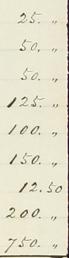 25. "
50. "
50. "
125. "
100. "
150. "
12.50
200. "
750. "